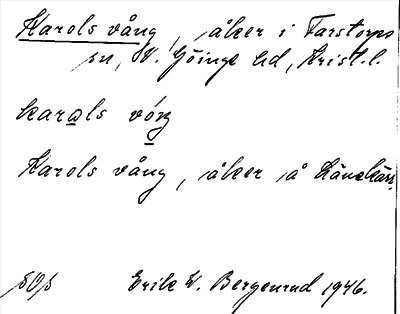 Karols vång, åker i Farstorps
sn, V. Göinge hd, Krist. l.
karals våŋ
Karols vång, åker å
Erik W. Bergenrud 1946.